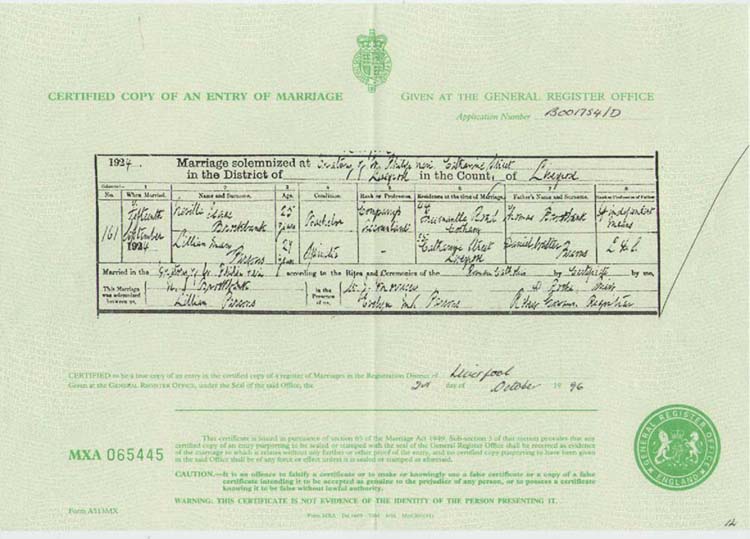 CERTIFIED COPY OF AN ENTRY OF MARRIAGE
GIVEN AT THE GENERAL REGISTER OFFICE
Application Number B001754/D
1924. Marriage solemnized at Oratory of St Philip Neri Catharine Street
in the District of Liverpool in the County of Liverpool
Columns:— 1 2 3 4 5 6 7 8
No. When Married. Name and Surname. Age. Condition. Rank or Profession. Residence at the time of Marriage. Father's Name and Surname. Rank or Profession of Father
161 Fifteenth September 1924 Neville Isaac Brookbank 25 years Bachelor Company's Accountant Road Thomas Brookbank Of independent means
Lillian Mary Parsons 24 years Spinster – Catharine Street Liverpool Daniel Parsons
Married in the Oratory of St Philip Neri according to the Rites and Ceremonies of the Roman Catholics by Certificate by me,
This Marriage was solemnized between us, Brookbank Lillian Parsons in the Presence of us, Evelyn Parsons Registrar
CERTIFIED to be a true copy of an entry in the certified copy of a register of Marriages in the Registration District of Liverpool
Given at the GENERAL REGISTER OFFICE, under the Seal of the said Office, the 2nd day of October 19 96
MXA 065445
This certificate is issued in pursuance of section 65 of the Marriage Act 1949. Sub-section 3 of that section provides that any
certified copy of an entry purporting to be sealed or stamped with the seal of the General Register Office shall be received as evidence
of the marriage to which it relates without any further or other proof of the entry, and no certified copy purporting to have been given
in the said Office shall be of any force or effect unless it is sealed or stamped as aforesaid.
CAUTION.—It is an offence to falsify a certificate or to make or knowingly use a false certificate or a copy of a false
certificate intending it to be accepted as genuine to the prejudice of any person, or to possess a certificate
knowing it to be false without lawful authority.
WARNING: THIS CERTIFICATE IS NOT EVIDENCE OF THE IDENTITY OF THE PERSON PRESENTING IT.
GENERAL REGISTER OFFICE
ENGLAND
Form A513MX
12